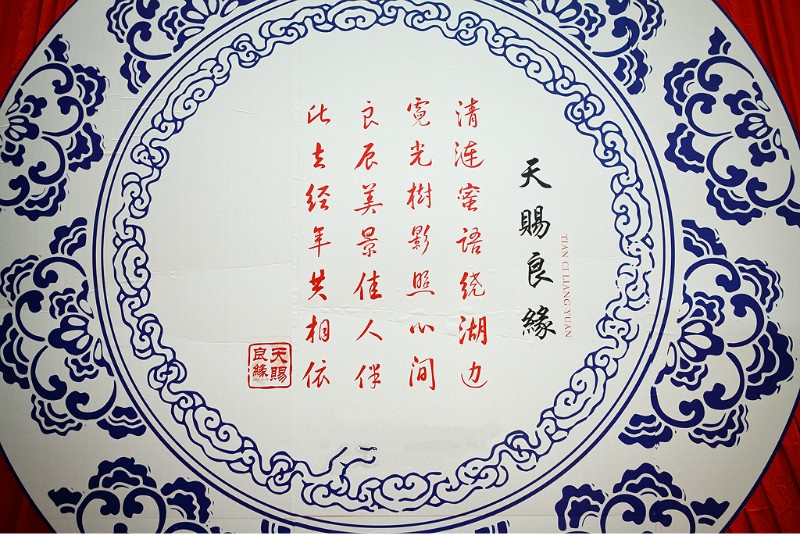 天賜良緣
TIAN CI LIANG YUAN
清涟蜜语绕湖边
霓光樹影照心间
良辰美景佳人伴
此去经年共相依
天賜良緣